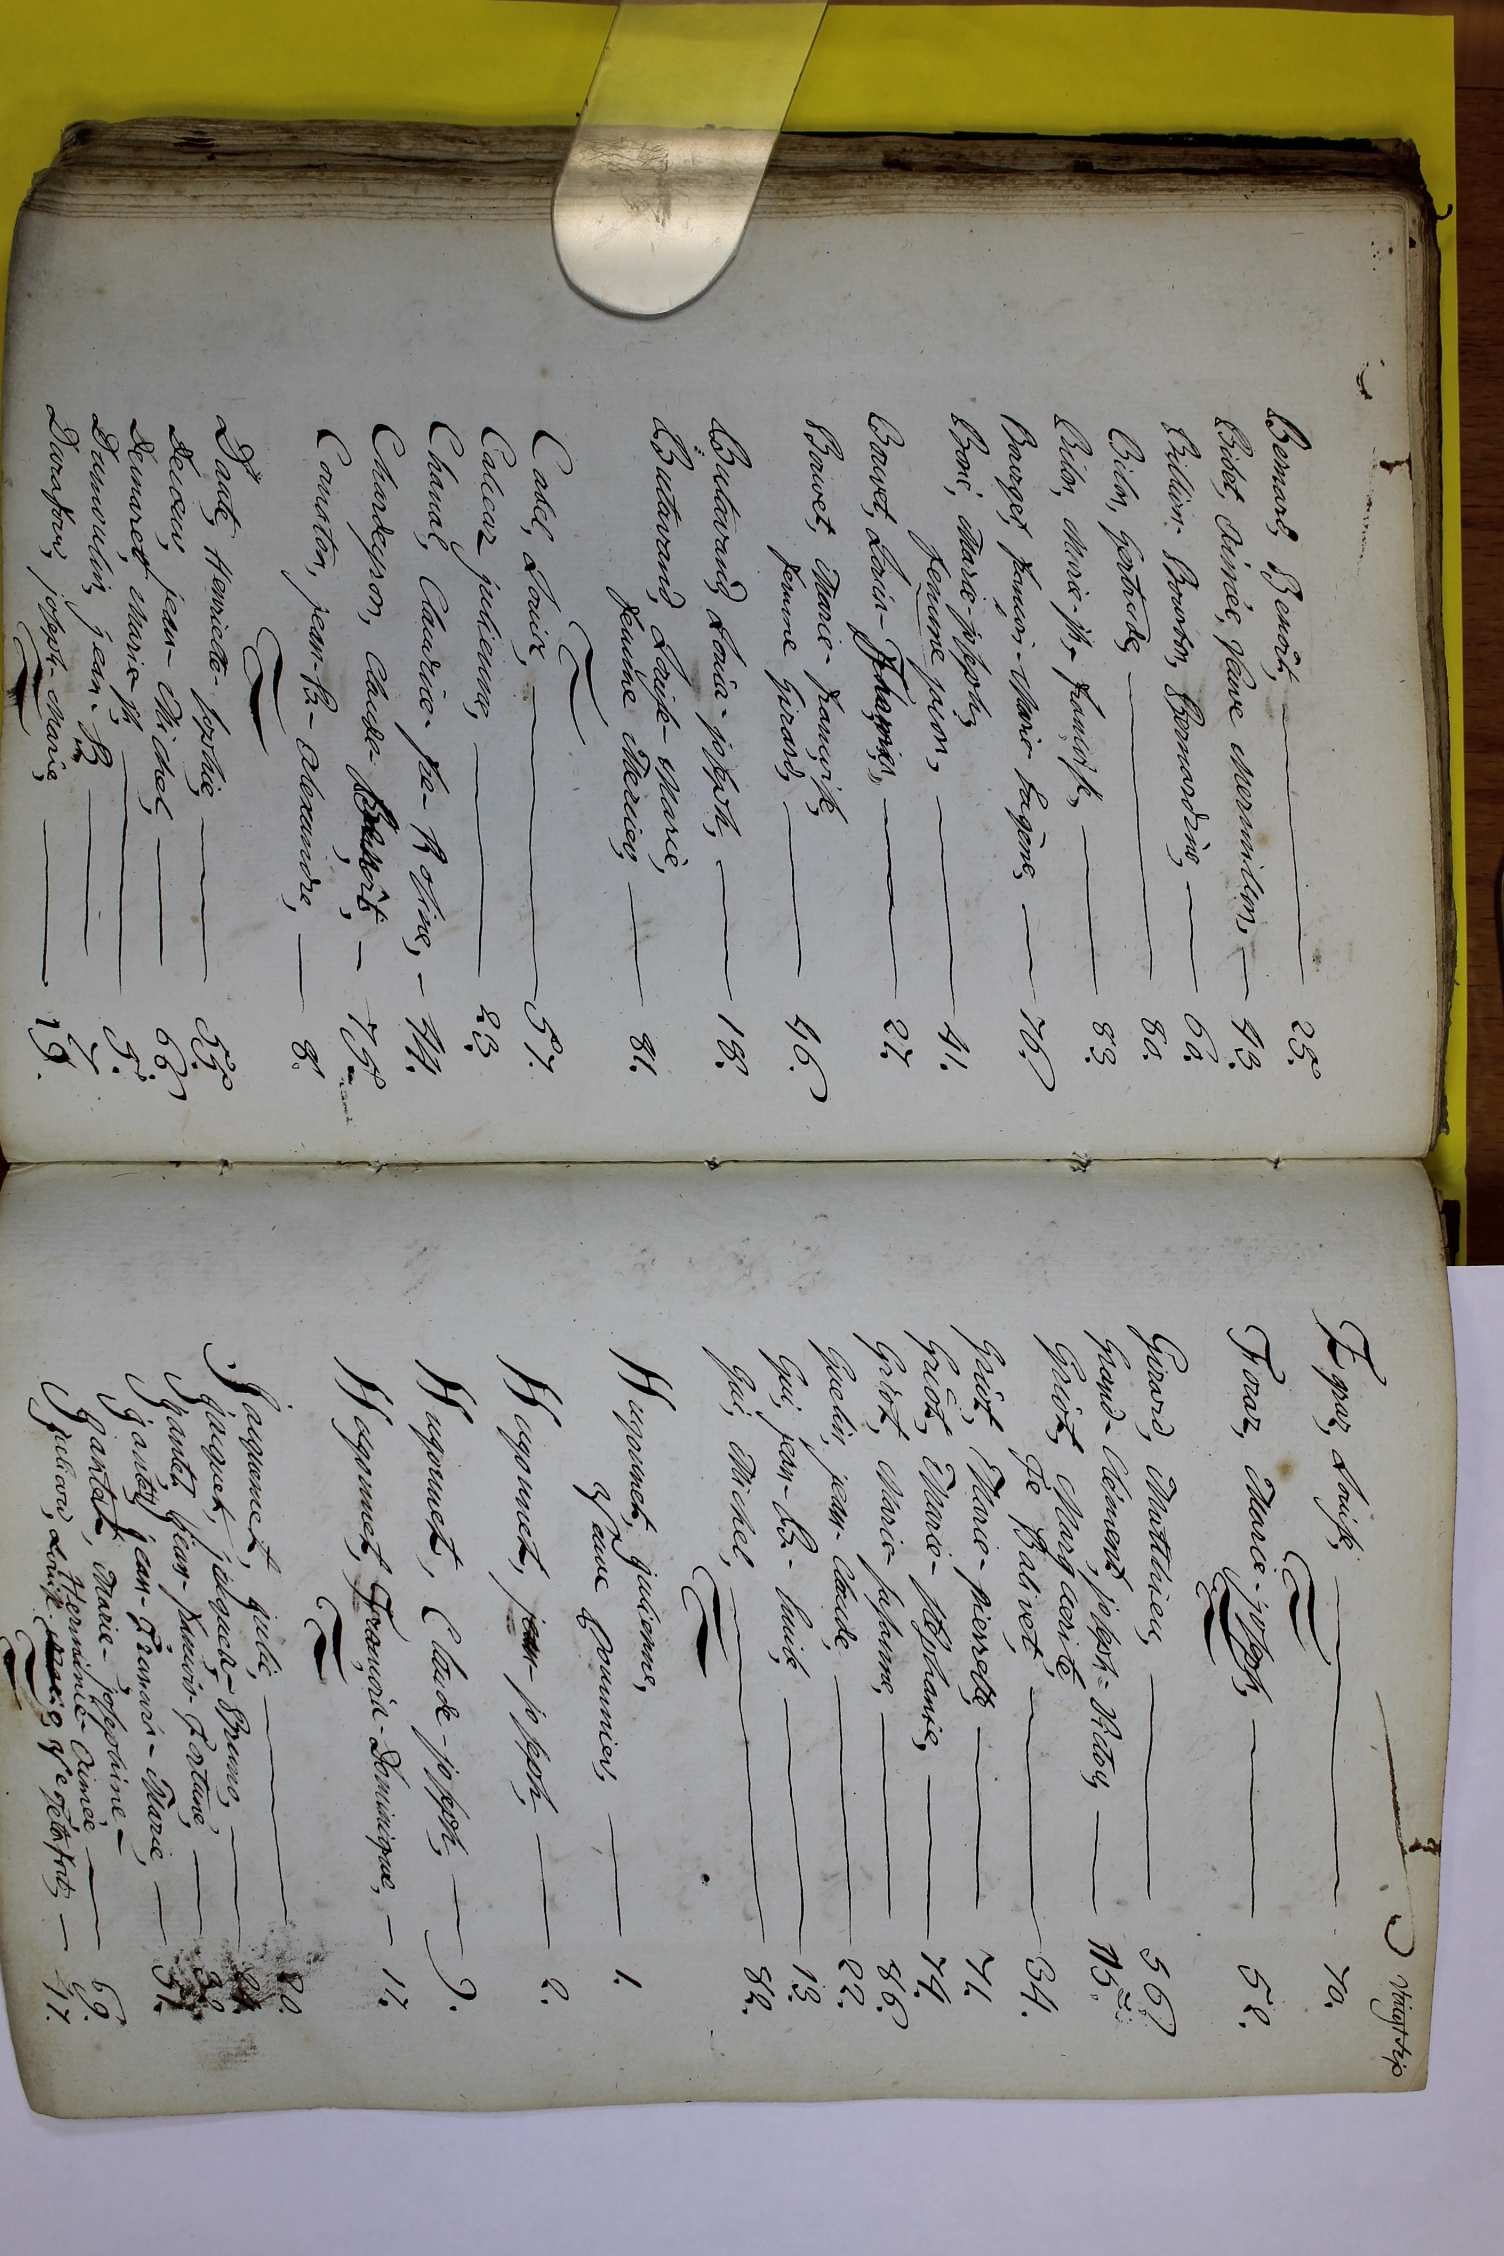 Bernard, Benoît, 25.
Bidot, Aimée, veuve Mermillon, 43.
Billion-Bourbon, Bernardine, 60.
Bilon, Gertrude, 80.
Bilon, Marie-françoise, 83.
Bourget, françois-Marie-Eugène, 76.
Bonc, Marie-josèph,
femme jaron, 41.
Bouvet, Lorin-François, 27.
Bouvet, Marie-françoise,
femme Girard, 46.
Butavand, Louis-joseph, 18.
Butavand, Louise-Marie,
femme Mercier, 81.
Cadel, Louis, 57.
Calcar julienne, 23.
Chanal, Claudine-Rosine, 44.
Chardeyron, Claude-Benoît, 75.
Courston, jean-Bte-Alexandre, 8.
Dade, Henriette-sophie, 55.
Decoeur, jean-Michel, 66.
Demaret, Marie 5.
Dumoulin, jean-Bte 7.
Durafour, joseph-Marie, 19.
vingt six
Egraz, Louise, 70.
Foraz, Marie-joseph, 52.
Girard, Matthieu, 56.
Grand-Clément, joseph-Victor, 15.
Griot, Marguerite
fe Balivet, 34.
Griot, Marie-pierrette, 71.
Griot, Marie-Stéphanie, 74.
Griot, Marie-susanne, 86.
Guelin, jean-Claude, 22.
Gui, jean-Bte-Louis, 13.
Gui, Michel, 82.
Hugonnet, julienne,
veuve Fournier, 1.
Hugonnet, jean-joseph, 2.
Hugonnet, Claude-joseph, 9.
Hugonnet, François-Dominique, 17.
Jacquemet, julie, 20.
jacquet, jacques-Bruno,
jantet, jean-françois-Fortuné, 32.
jantet, jean-François-Marie, 51.
jantet, Marie-josephine-
Herminie-Aimée, 69.